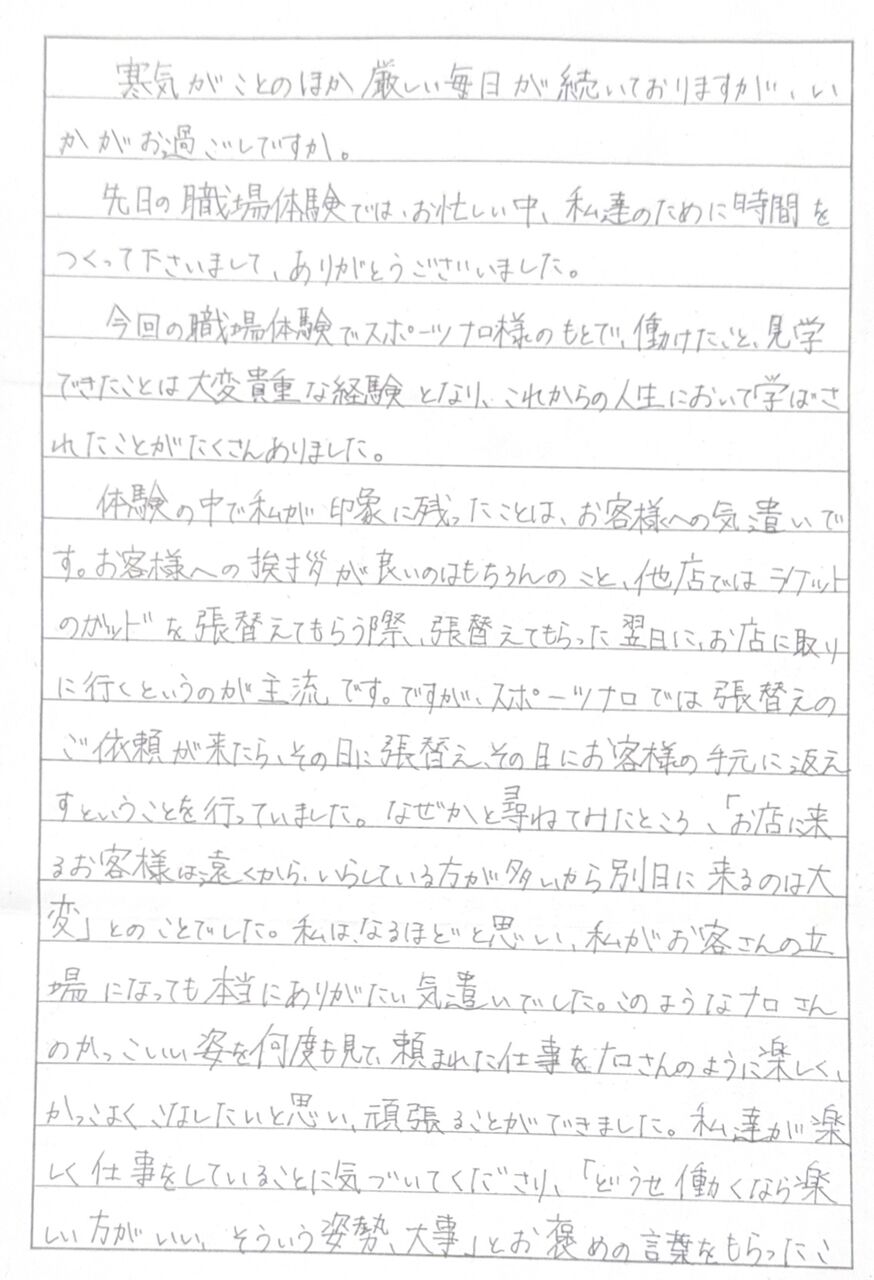 寒気がことのほか厳しい毎日が続いておりますが、い
かがお過ごしですか。
先日の職場体験では、お忙しい中、私達のために時間を
つくって下さいまして、ありがとうございました。
今回の職場体験でスポーツナロ様のもとで、働けたこと、見学
できたことは大変貴重な経験となり、これからの人生において学ばさ
れたことがたくさんありました。
体験の中で私が印象に残ったことは、お客様への気遣いで
す。お客様への挨拶が良いのはもちろんのこと、他店ではラケット
のガットを張替えてもらう際、張替えてもらった翌日に、お店に取り
に行くというのが主流です。ですが、スポーツナロでは張替えの
ご依頼が来たら、その日に張替え、その日にお客様の手元に返え
すということを行っていました。なぜかと尋ねてみたところ、「お店に来
るお客様は遠くから、いらしている方が多いから別日に来るのは大
変」とのことでした。私は、なるほどと思い、私がお客さんの立
場になっても本当にありがたい気遣いでした。このようなナロさん
のかっこいい姿を何度も見て、頼まれた仕事をナロさんのように楽しく、
かっこよくこなしたいと思い、頑張ることができました。私達が楽
しく仕事をしていることに気づいてくださり、「どうせ働くなら楽
しい方がいい、そういう姿勢、大事」とお褒めの言葉をもらったこ